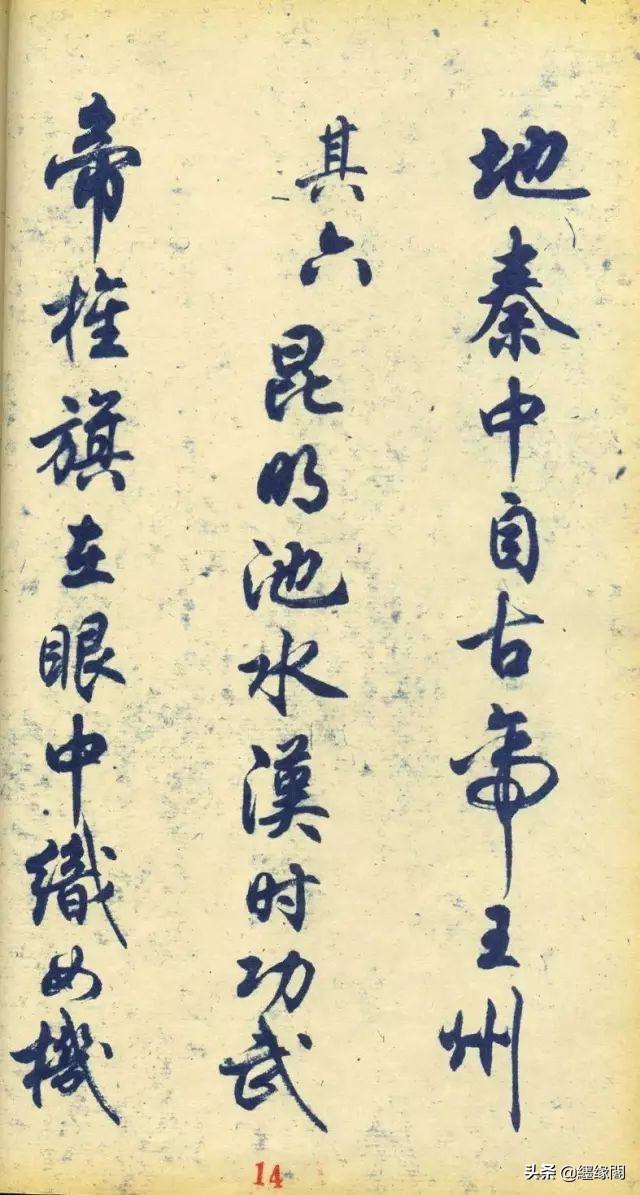 地秦中自古帝王州
其六 昆明池水漢时功武
帝旌旗在眼中織女機
14
头条 @缘閣